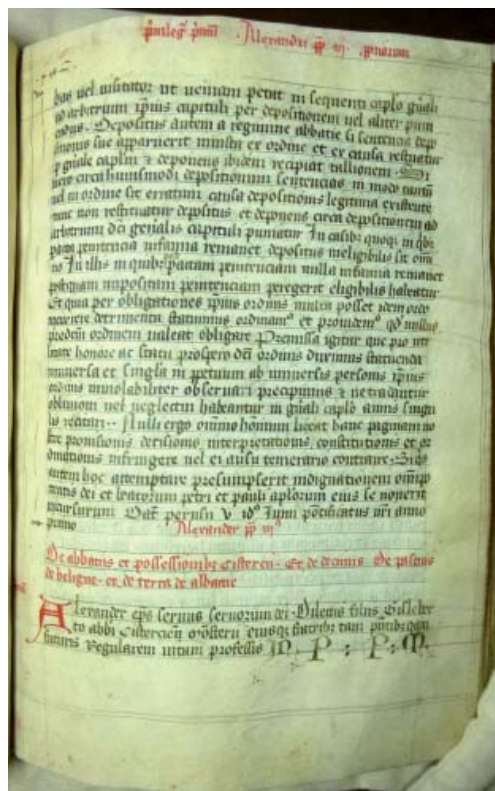 Alexander pp iij
bus uel uisitator ut ueniam petat in sequenti caplo gnali
ad arbitrium ipius capituli per depositionem uel aliter puni
endus. Depositus autem a regimine abbatie si sentencia depo
sitionis sue apparuerit iniusta ex ordine et ex causa restituatur
p gnale caplm & deponens ibidem recipiat tallionem. Si
uero circa huiusmodi depositionum sentencias in modo tantum
uel in ordine sit erratum causa depositionis legitima existente
tunc non restituatur depositus et deponens circa depositionem ad
arbitrium dci genalis capituli puniatur In casibz quoqz in qbz
pacta penitencia infamia remanet depositus ineligibilis sit omi
no In illis in quibz pactam penitenciam nulla infamia remanet
postquam impositam penitenciam peregerit eligibilis habeatur
Et quia per obligationes ipius ordinis multa posset idem ordo
incurrere detrimenta statuimus ordinam9 et prouidem9 qd nullus
predcm ordinem ualeat obligare Premissa igitur que pro uti
litate honore ac statu prospero dci ordinis duximus statuenda
uniuersa et singla in ppetuum ab uniuersis personis ipius
ordinis inuiolabiliter obseruari precipimus & ne tradantur
obliuioni uel neglectui habeantur in gnali caplo annis singu
lis recitari. Nulli ergo omnino hominum liceat hanc paginam no
stre prouisionis, decisionis, interpretationis, constitutionis et or
dinationis infringere uel ei ausu temerario contraire. Siqs
autem hoc attemptare presumpserit indignationem omipo
tentis dei et beatorum petri et pauli aplorum eius se nouerit
incursurum Dat perusii v id9 Iunii pontificatus nri anno
primo
Alexander pp iij9
De abbatiis et possessionibz Cistercii. Et de decimis De pastuis
de beligne. et de terra de albame
Alexander eps seruus seruorum dei. Dilectis filiis Gisleber
to abbi Cisterciens monasterii eiusqz fratribz tam pntibz qam
futuris Regularem uitam professis IN. P : P : M.